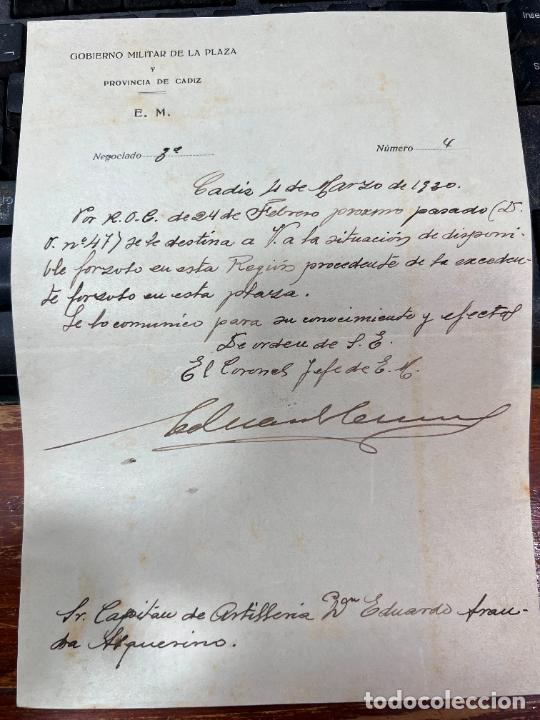 GOBIERNO MILITAR DE LA PLAZA
Y
PROVINCIA DE CADIZ
E. M.
Negociado 3º
Número 4
Cadiz 4 de Marzo de 1920.
Por R.O.C. de 24 de Febrero proximo pasado (D.
O. nº 47) se le destina a V. a la situación de disponi-
ble forzoso en esta Región procedente de la exceden-
te forzoso en esta plaza.
Se lo comunico para su conocimiento y efectos
De orden de S. E.
El Coronel Jefe de E. M.
Sr. Capitan de Artilleria Don Eduardo Aran-
da Asquerino.
todocoleccion